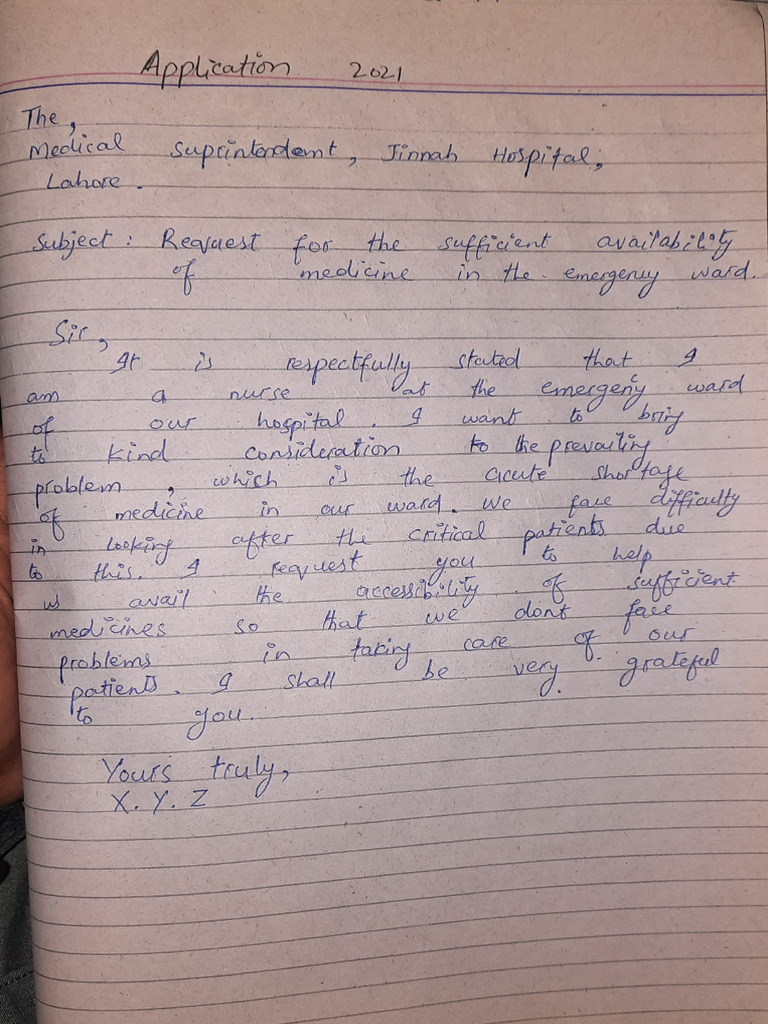 Application 2021
The,
Medical Suprintendent, Jinnah Hospital,
Lahore.
Subject: Request for the sufficient availability
of medicine in the emergency ward.
Sir,
It is respectfully stated that I
am a nurse at the emergency ward
of our hospital. I want to bring
to kind consideration to the prevailing
problem, which is the acute shortage
of medicine in our ward. We face difficulty
in looking after the critical patients due
to this. I request you to help
us avail the accessibility of sufficient
medicines so that we dont face
problems in taking care of our
patients. I shall be very grateful
to you.
Yours truly,
X. Y. Z